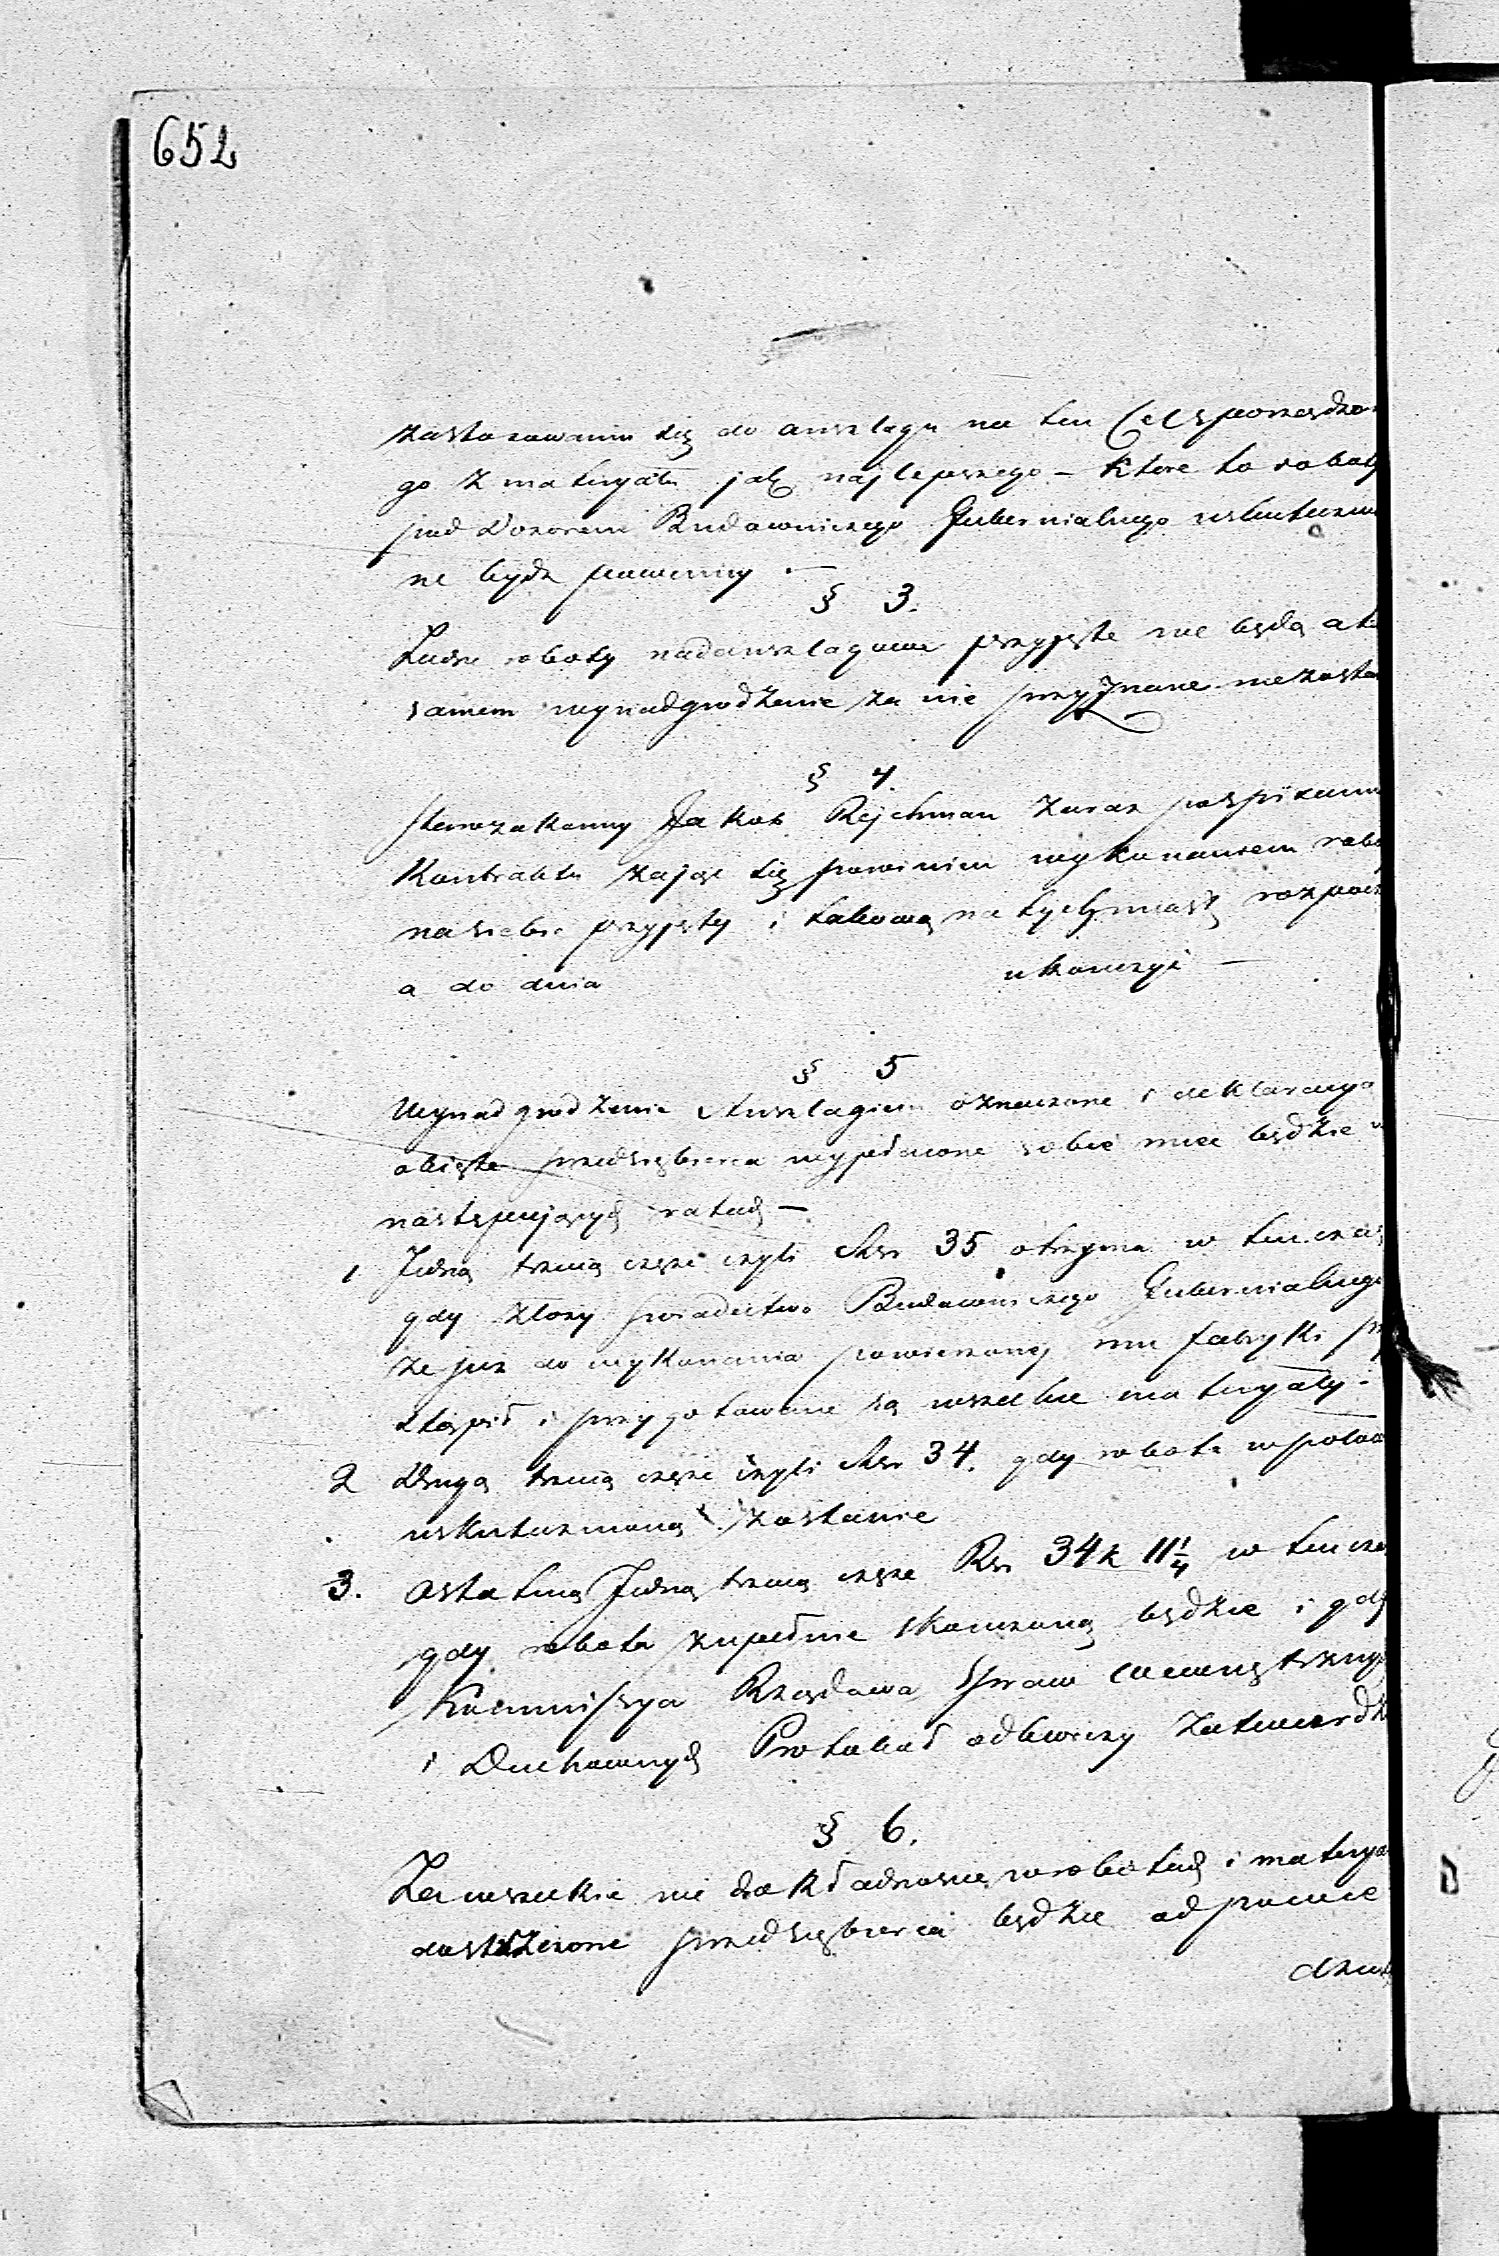 652
zastosowaniu się do anszlagu na ten Cel sporządzo
go z materyału jak najlepszego – które to roboty
pod Dozorem Budowniczego Gubernialnego uskutecznio
ne bydź powinny. —
§ 3.
Żadne roboty nadanszlagowe przyjęte nie będą a te
samem wynadgrodzenie za nie przyznane nie zosta
§ 4.
Starozakonny Jakob Rejchman zaraz po spisaniu
Kontraktu zająć się powinien wykonaniem robo
na siebie przyjęty i takową natychmiast rozpocz
a do dnia ukonczyć —
§ 5
Wynadgrodzenie Anszlagiem oznaczone i deklaracya
objęte przedsiębierca wypłacone sobie mieć będzie w
następujących ratach —
1 Jedną trzecią część czyli Rsr 35 otrzyma w ten czas
gdy złoży świadectwo Budowniczego Gubernialnego
że już do wykonania powierzonej mu fabryki przy
stąpił i przygotowane są wszelkie materyały –
2 drugą trzecią część czyli Rsr 34. gdy robota w połow
uskutecznioną zostanie
3. Ostatnią Jedną trzecią część Rsr 34 k 11 1/4 w ten czas
gdy robota zupełnie skonczoną będzie i gdy
Kommissya Rządowa Spraw Wewnętrznych
i Duchownych Protokół odbiorczy zatwierdzi
§ 6.
Za wszelkie nie dokładności w robotach i materya
dostrzeżone przedsiębierca będzie odpowie
dzial